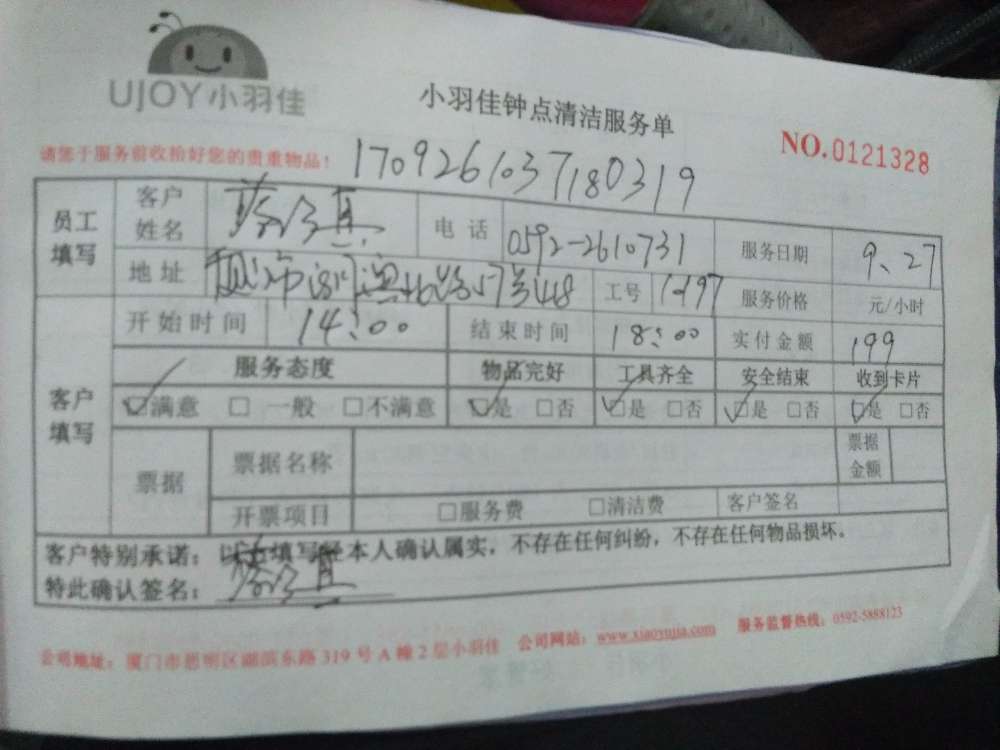 UJOY小羽佳
小羽佳钟点清洁服务单
NO.0121328
请您于服务前收拾好您的贵重物品！
1709261037180319
员工填写 客户姓名 电话 0592-2610731 服务日期 9、27
地址 工号 服务价格 元/小时
客户填写 开始时间 14:00 结束时间 18:00 实付金额 199
服务态度 物品完好 工具齐全 安全结束 收到卡片
☑满意 □一般 □不满意 ☑是 □否 ☑是 □否 ☑是 □否 ☑是 □否
票据 票据名称 票据金额
开票项目 □服务费 □清洁费 客户签名
客户特别承诺：以上填写经本人确认属实，不存在任何纠纷，不存在任何物品损坏。
特此确认签名：
公司地址：厦门市思明区湖滨东路319号A幢2层小羽佳 公司网站：www.xiaoyujia.com 服务监督热线：0592-5888123